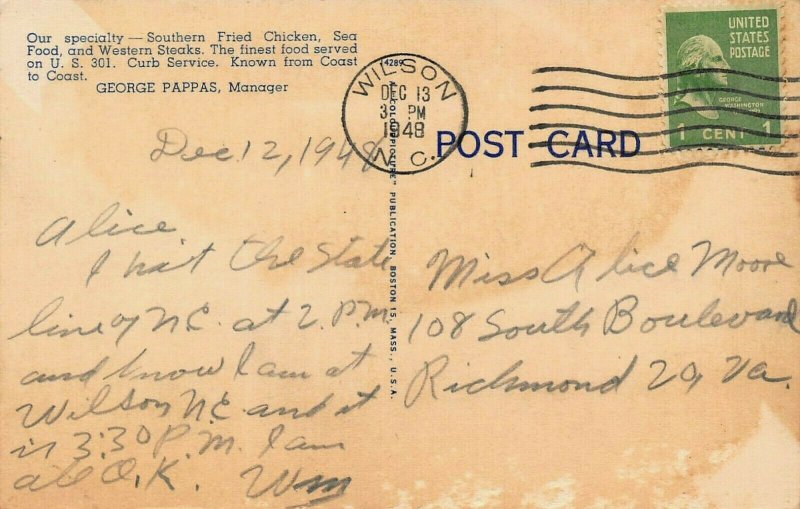 Our specialty — Southern Fried Chicken, Sea
Food, and Western Steaks. The finest food served
on U. S. 301. Curb Service. Known from Coast
to Coast.
GEORGE PAPPAS, Manager
WILSON
14289
DEC 13
PM
1948
N. C.
UNITED
STATES
POSTAGE
GEORGE
WASHINGTON
1 CENT 1
POST CARD
"COLOURPICTURE" PUBLICATION BOSTON 15, MASS., U.S.A.
Dec 12, 1948
Alice
I hit the State
line of N.C. at 2. P.M.
and know I am at
Wilson N.C and it
is 3:30 P.M. I am
all O.K. Wm
Miss Alice Moore
108 South Boulevard
Richmond 20, Va.